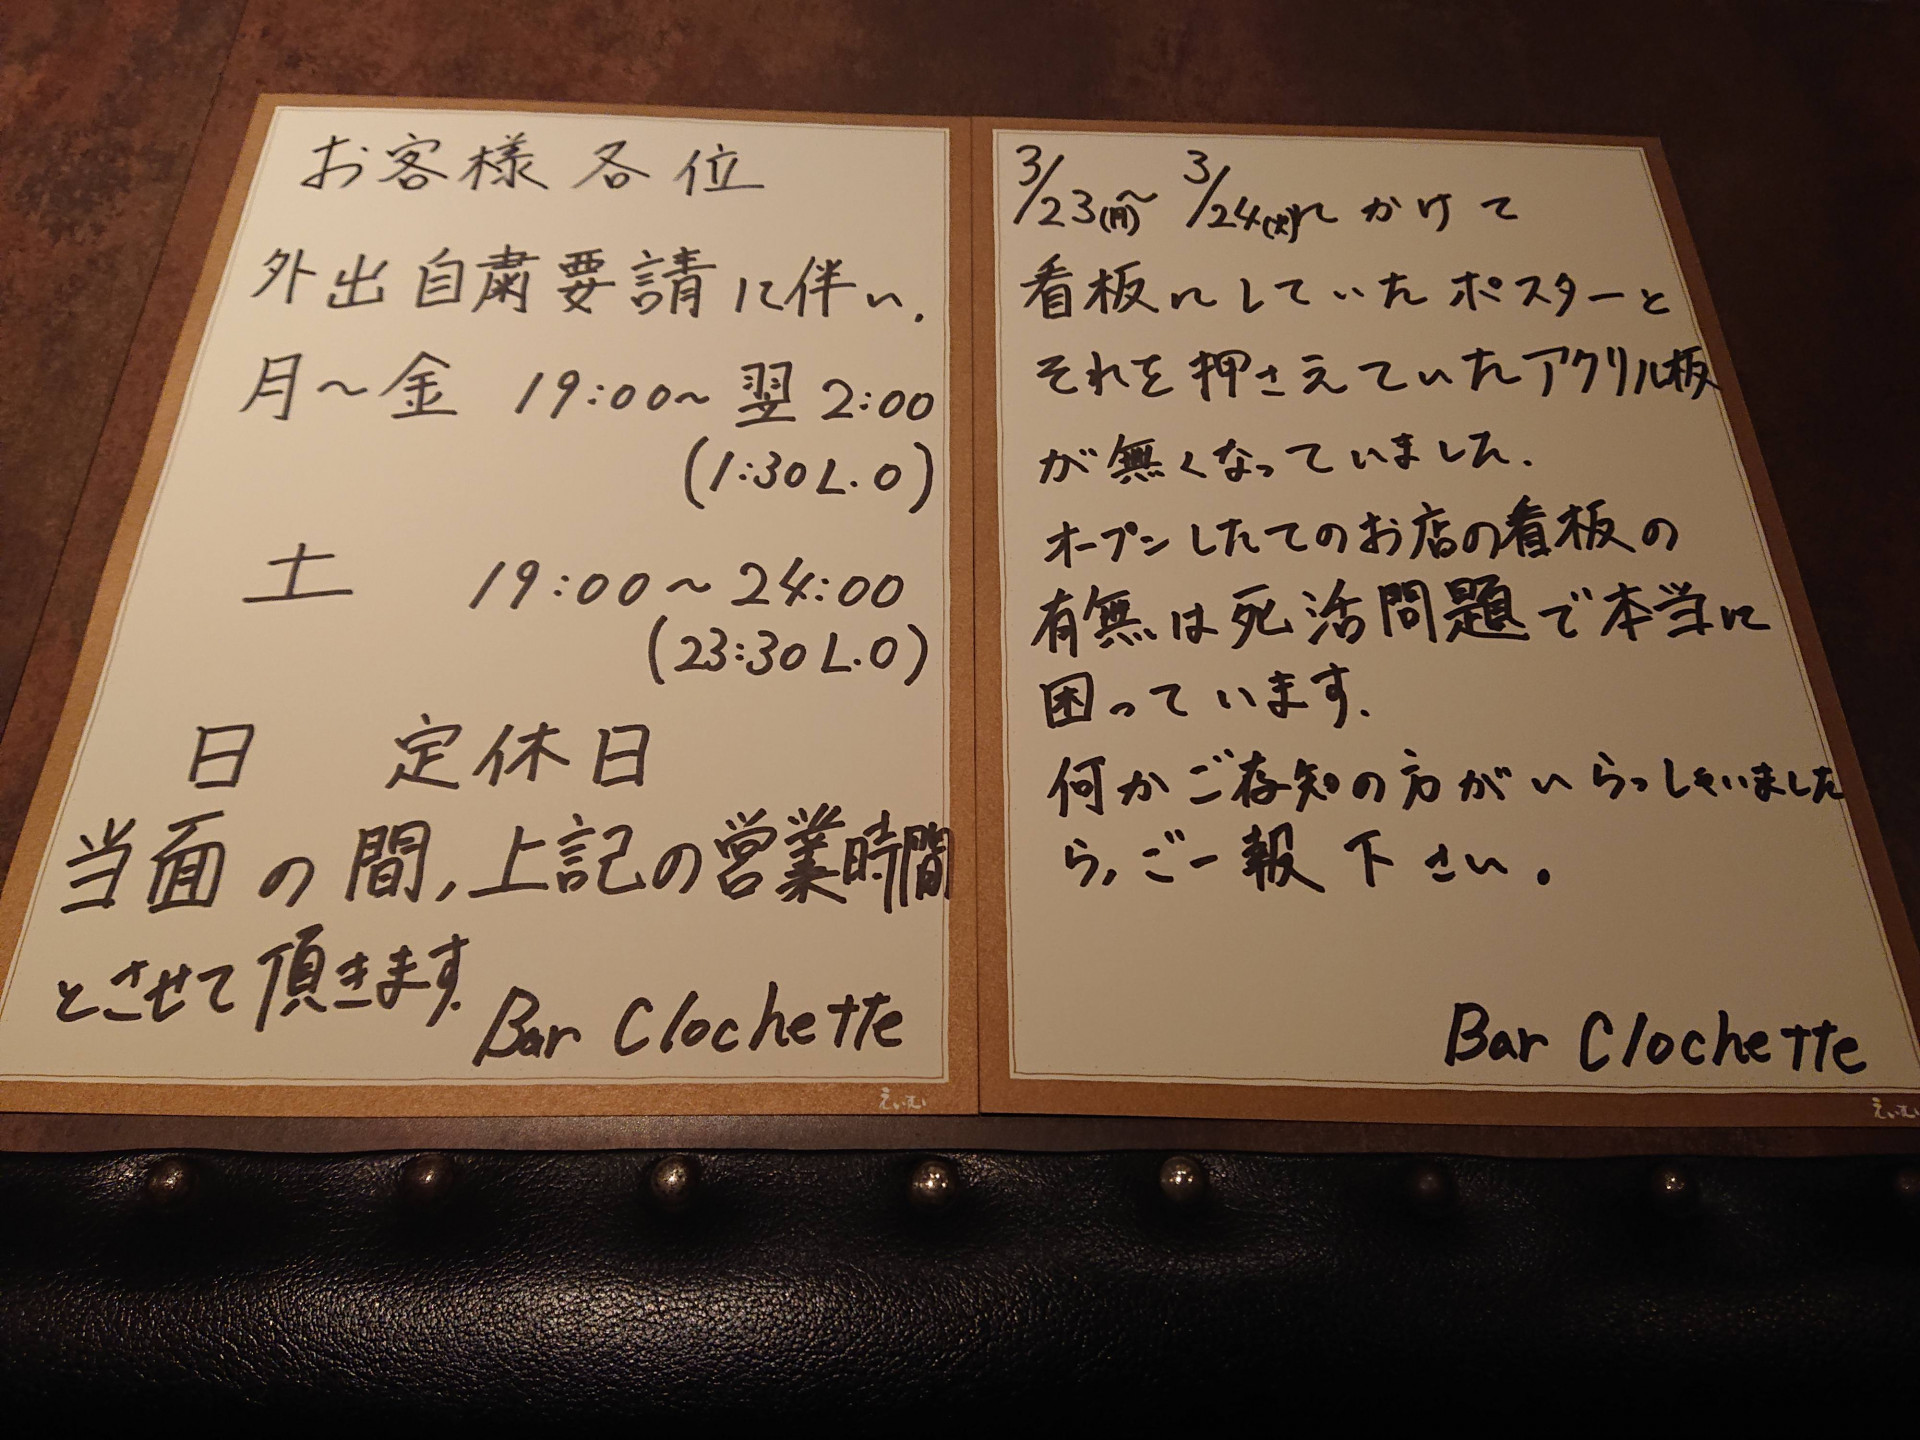 お客様各位
外出自粛要請に伴い、
月～金 19:00～翌2:00
(1:30 L.O)
土 19:00～24:00
(23:30 L.O)
日 定休日
当面の間、上記の営業時間
とさせて頂きます。
Bar Clochette
えいむ
3/23(月)～3/24(火)にかけて
看板にしていたポスターと
それを押さえていたアクリル板
が無くなっていました。
オープンしたてのお店の看板の
有無は死活問題で本当に
困っています。
何かご存知の方がいらっしゃいました
ら、ご一報下さい。
Bar Clochette
えいむ